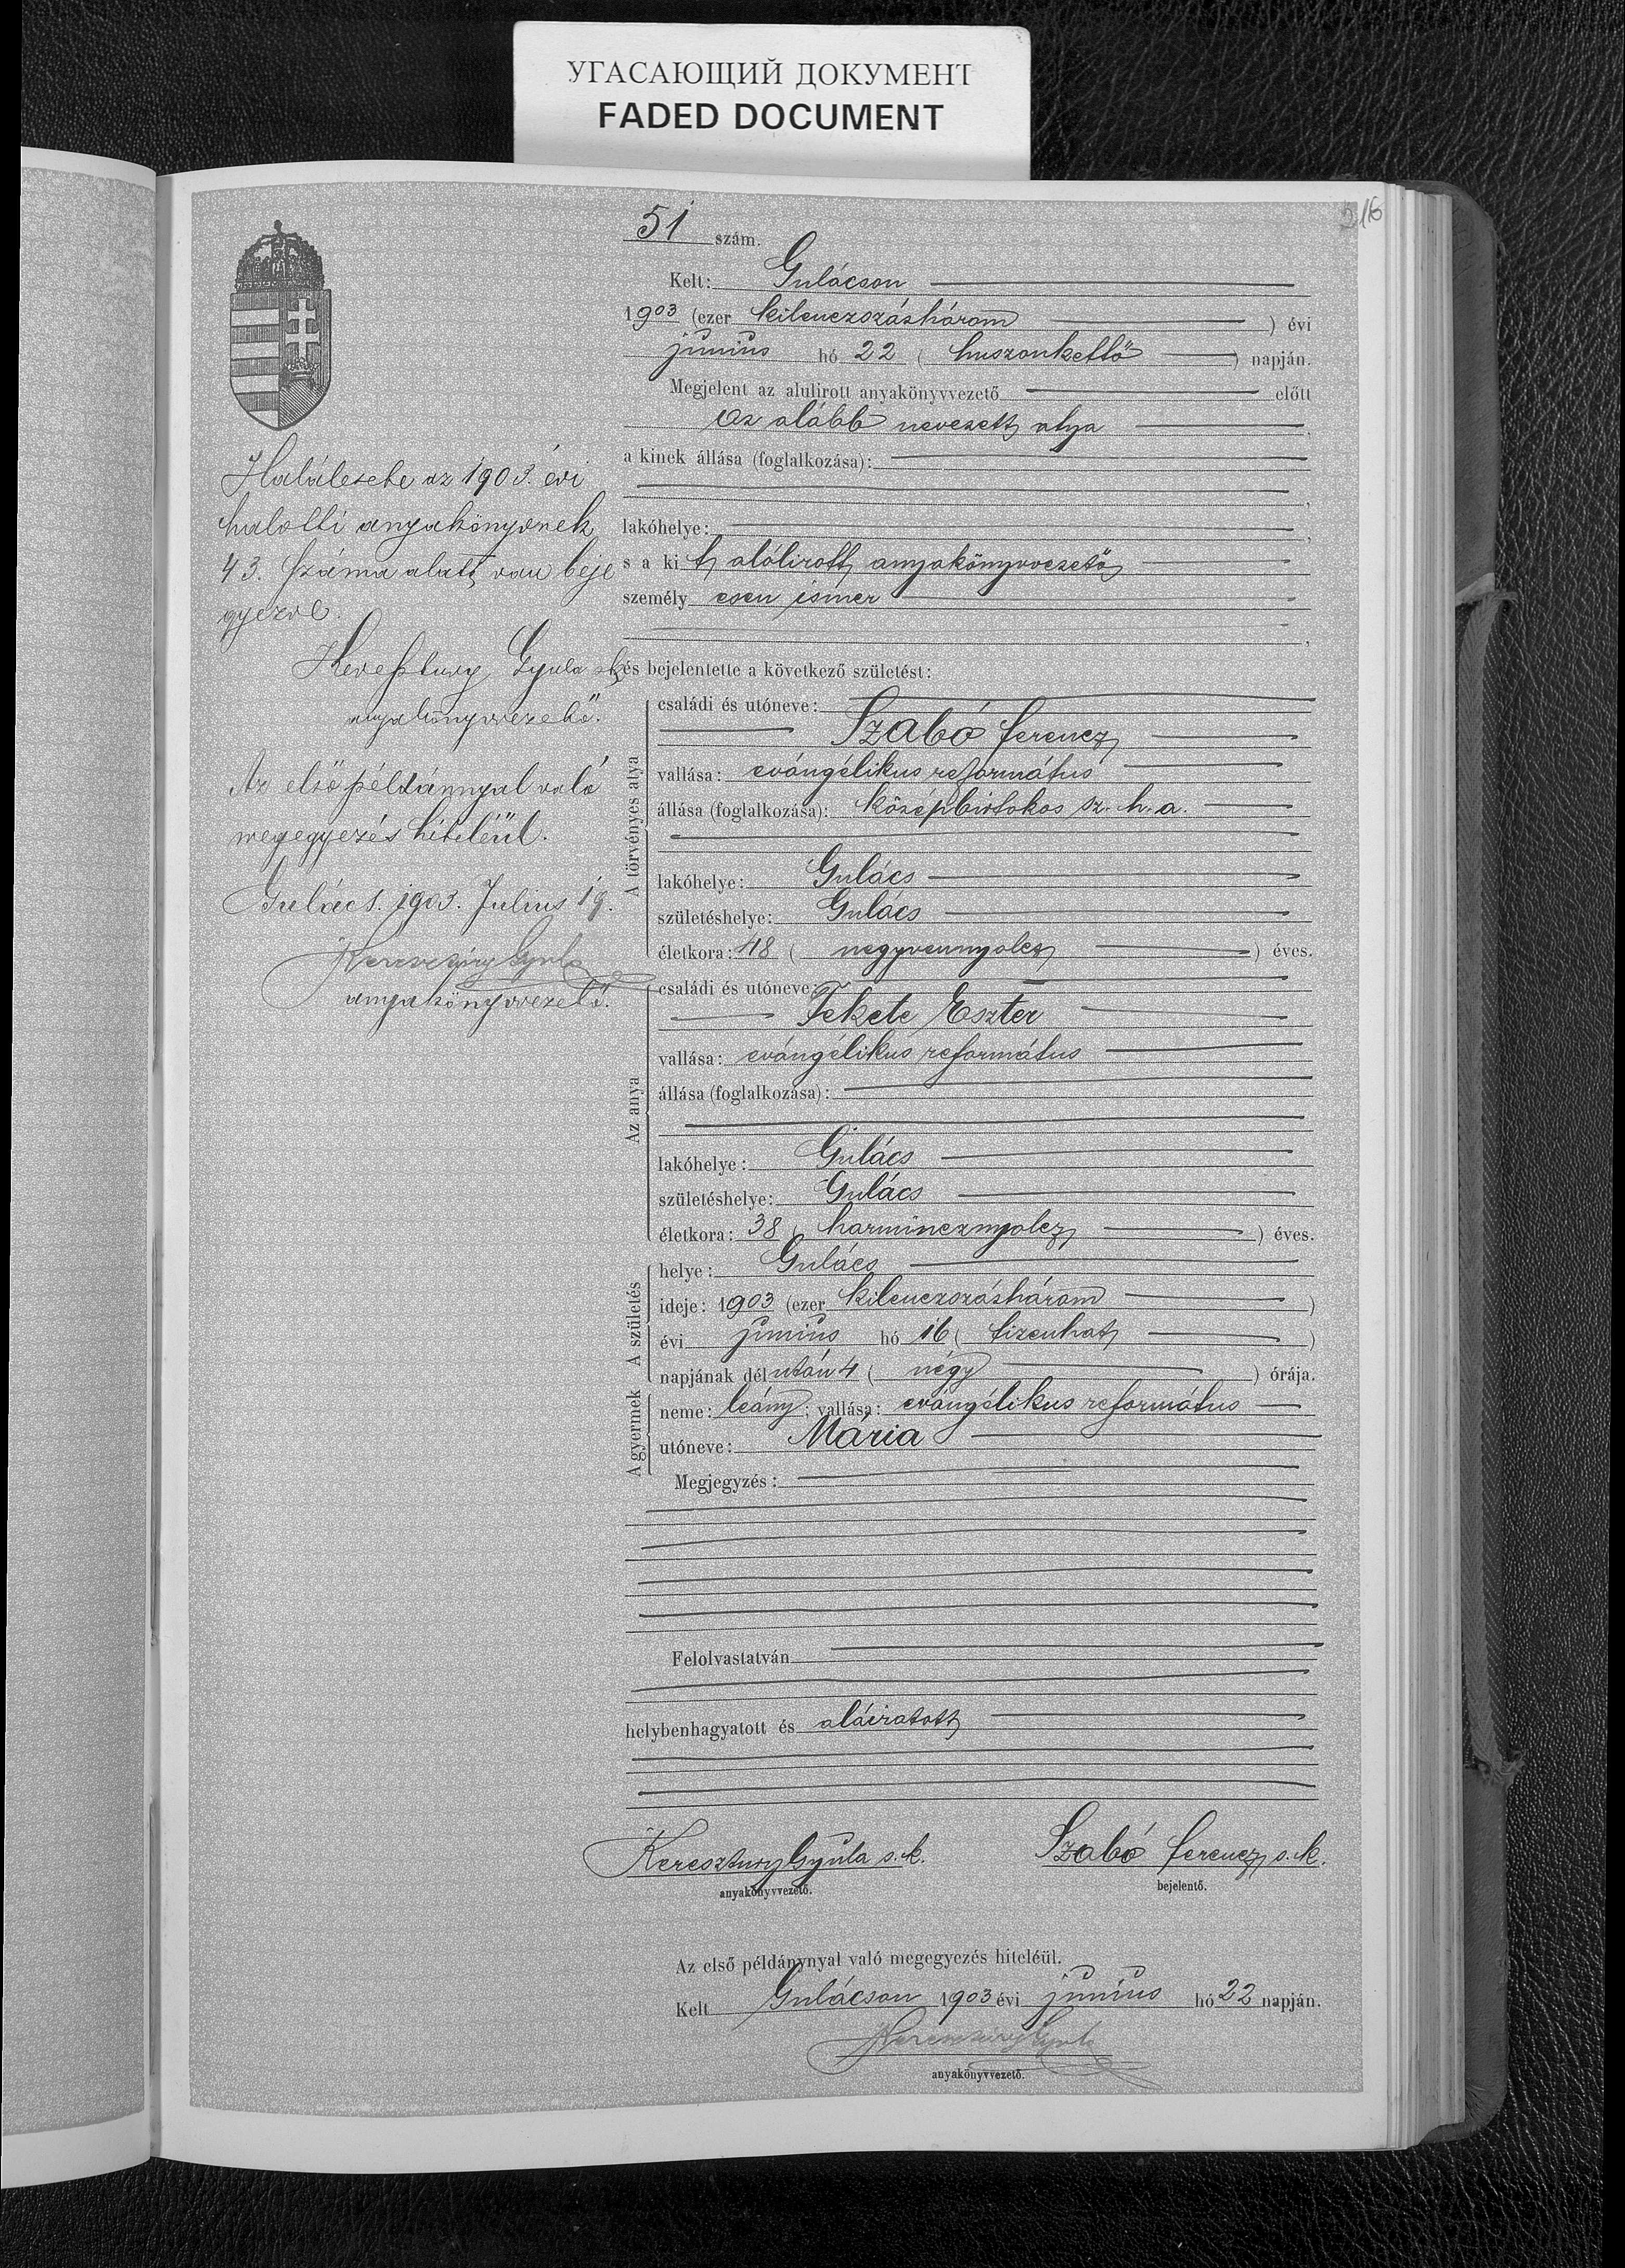 УГАСАЮЩИЙ ДОКУМЕНТ
FADED DOCUMENT
516
51 szám.
Kelt: Gulácson
1903 (ezer kilenczszázhárom ) évi
junius hó 22 ( huszonkettő ) napján.
Megjelent az alulirott anyakönyvvezető előtt
az alább nevezett atya
a kinek állása (foglalkozása):
lakóhelye:
s a ki t alólirott anyakönyvvezető
személy esen ismer
és bejelentette a következő születést:
A törvényes atya
családi és utóneve:
Szabó Ferencz
vallása: evángélikus református
állása (foglalkozása): középbirtokos sz. h. a.
lakóhelye: Gulács
születéshelye: Gulács
életkora: 48 ( negyvennyolcz ) éves.
Az anya
családi és utóneve:
Fekete Eszter
vallása: evángélikus református
állása (foglalkozása):
lakóhelye: Gulács
születéshelye: Gulács
életkora: 38 ( harmincznyolcz ) éves.
A születés
helye: Gulács
ideje: 1903 (ezer kilenczszázhárom )
évi junius hó 16 ( tizenhat )
napjának dél után 4 ( négy ) órája.
A gyermek
neme: leány; vallása: evángélikus református
utóneve: Mária
Megjegyzés:
Felolvastatván
helybenhagyatott és aláiratott
Keresztury Gyula s. k.
anyakönyvvezető.
Szabó Ferencz s. k.
bejelentő.
Az első példánynyal való megegyezés hiteléül.
Kelt Gulácson 1903 évi junius hó 22 napján.
Keresztury Gyula
anyakönyvvezető.
Halálesete az 1903. évi
halotti anyakönyvnek
43. száma alatt van beje
gyezve.
Keresztury Gyula sk
anyakönyvvezető.
Az első példánnyal való
megegyezés hiteléül.
Gulács. 1903. Julius 19.
Keresztury Gyula
anyakönyvvezető.